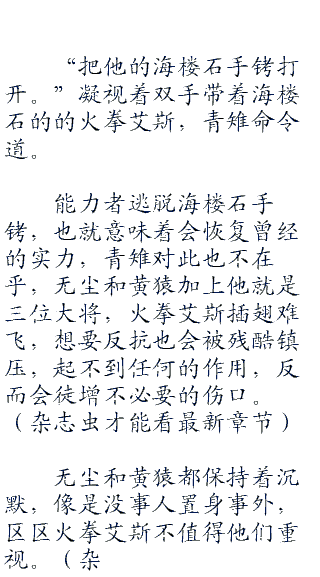 “把他的海楼石手铐打
开。”凝视着双手带着海楼
石的的火拳艾斯，青雉命令
道。
能力者逃脱海楼石手
铐，也就意味着会恢复曾经
的实力，青雉对此也不在
乎，无尘和黄猿加上他就是
三位大将，火拳艾斯插翅难
飞，想要反抗也会被残酷镇
压，起不到任何的作用，反
而会徒增不必要的伤口。
（杂志虫才能看最新章节）
无尘和黄猿都保持着沉
默，像是没事人置身事外，
区区火拳艾斯不值得他们重
视。（杂